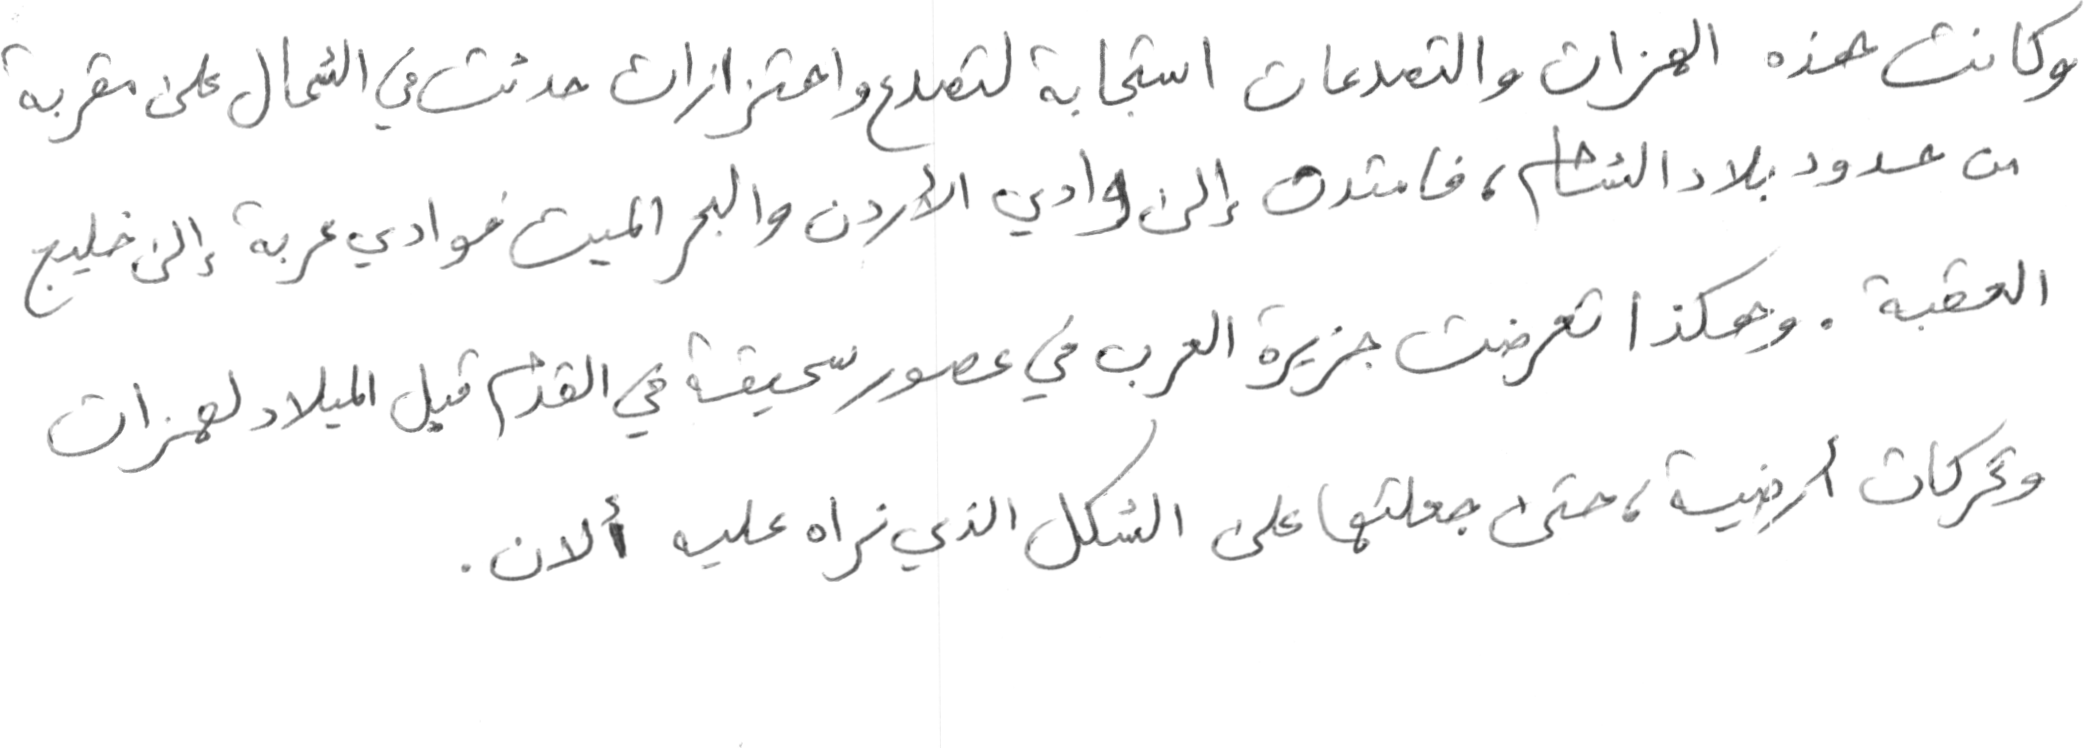 وكانت هذه الهزات والتصدعات استجابة لتصدع واهتزازات حدثت في الشمال على مقربة
من حدود بلاد الشام، فامتدت إلى وادي الأردن والبحر الميت فوادي عربة إلى خليج
العقبة. وهكذا تعرضت جزيرة العرب في عصور سحيقة في القدم قبل الميلاد لهزات
وتحركات أرضية، حتى جعلتها على الشكل الذي نراه عليه ألان.